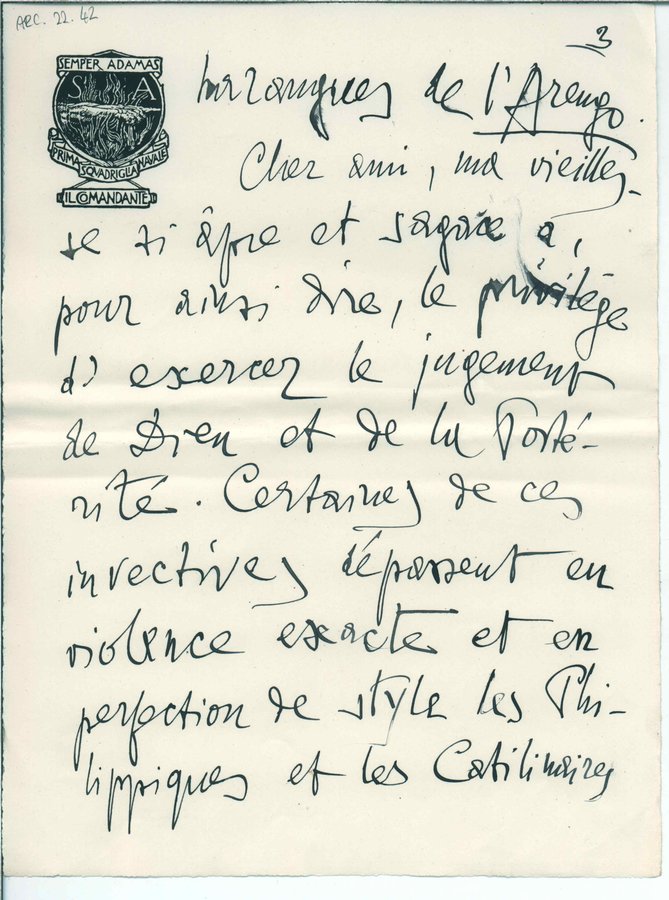 ARC. 22. 42
3
SEMPER ADAMAS
S A
PRIMA SQVADRIGLIA NAVALE
IL COMANDANTE
harangues de l'Arengo.
Cher ami, ma vieilles-
se si âpre et sagace a,
pour ainsi dire, le privilège
d'exercer le jugement
de Dieu et de la Posté-
rité. Certaines de ces
invectives dépassent en
violence exacte et en
perfection de style les Phi-
lippiques et les Catilinaires